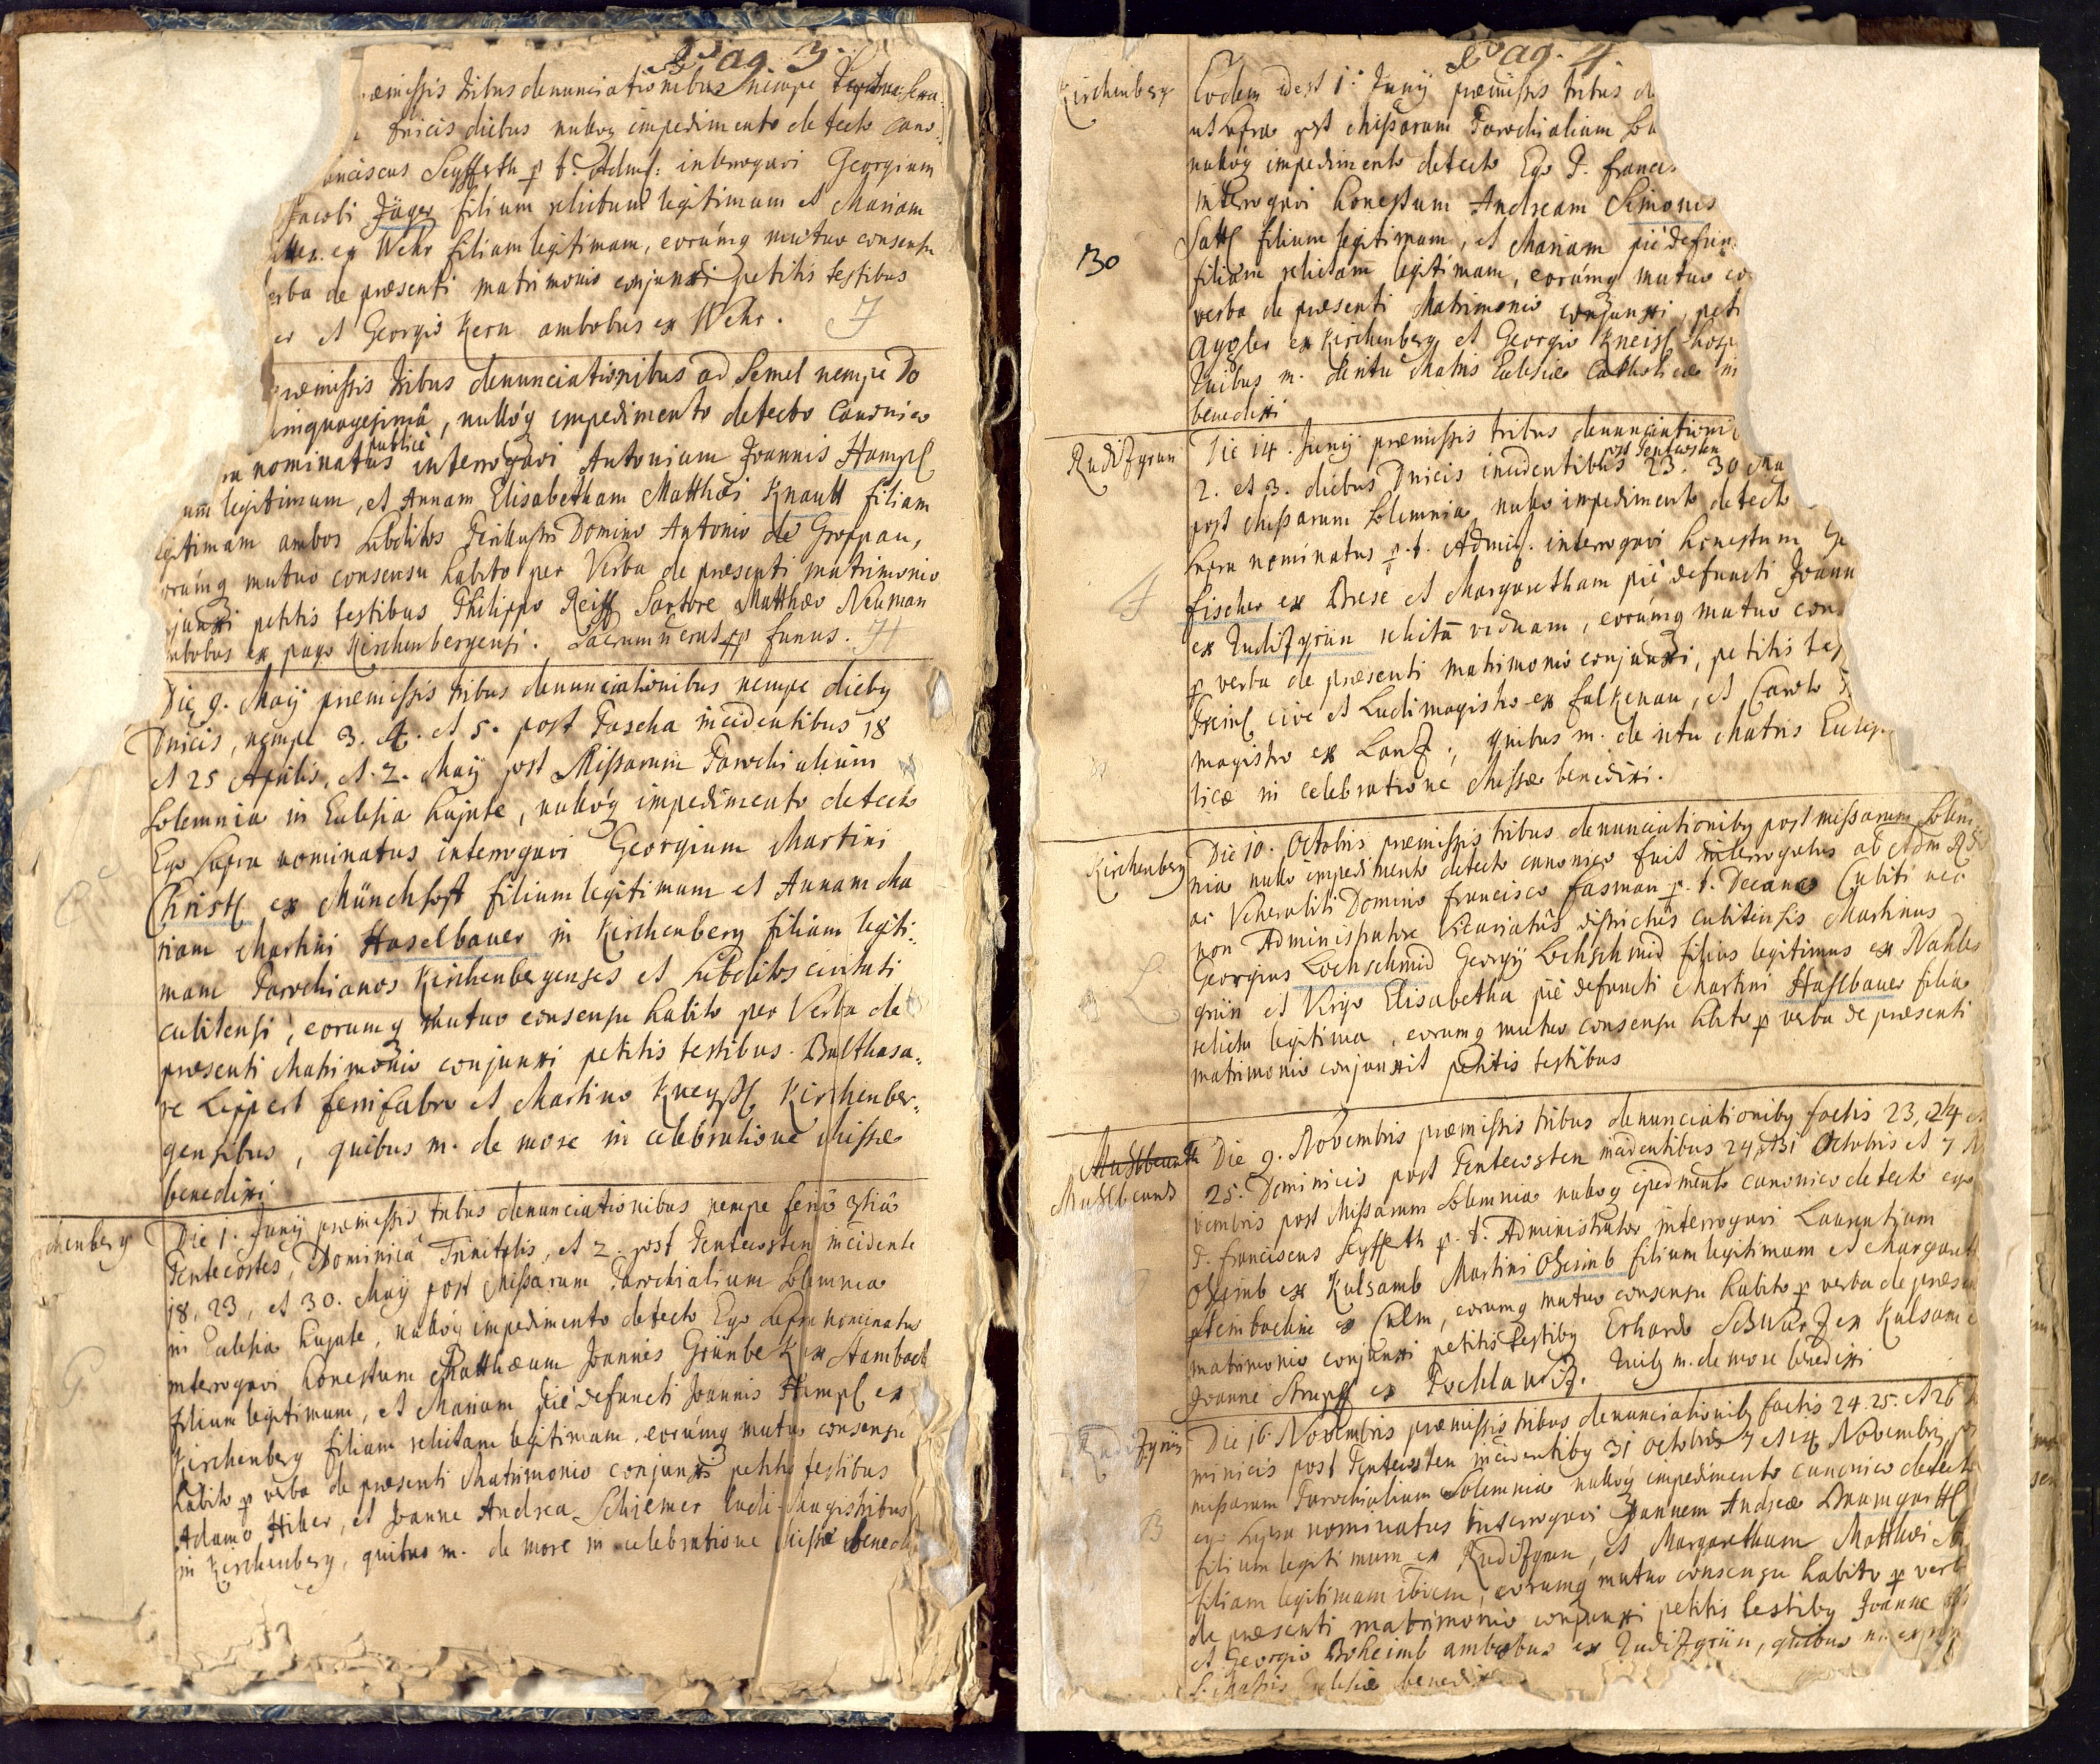 Pag. 3.
æmissis tribus denunciationibus nempe
Dnicis diebus nullóq impedimento detecto Cano-
anciscus Seyfferth p. t. Adms: interrogavi Georgium
Jacobi Jäger filium relictum legitimum et Mariam
ex Wehr filiam legitimam, eorúmq mutuo consensu
erba de præsenti matrimonio conjunxi petitis testibus
er et Georgio Kern ambobus ex Wehr.
præmissis tribus denunciationibus ad Semel nempe Do
inquagesimâ, nullóq impedimento detecto Canonico
publicè
ra nominatus interrogavi Antonium Joannis Hampl
um legitimum, et Annam Elisabetham Matthæi Knault filiam
egitimam ambos Subditos Perillustri Domino Antonio de Groppau,
orúmq mutuo consensu habito per Verba de præsenti matrimonio
junxi petitis testibus Philippo Reiff Sartore Matthæo Neuman
mbobus ex pago Kirchenbergensi. Sacrum erat funus.
Die 9. Maÿ præmissis tribus denunciationibus nempe diebq
Dnicis, nempe 3. 4. et 5. post Pascha incidentibus 18
et 25 Aprilis, et 2. Maÿ post Missarum Parochialium
Solemnia in Eclesia hujate, nullóq impedimento detecto
Ego Supra nominatus interrogavi Georgium Martini
Christl ex Münchhoft filium legitimum et Annam Ma
riam Martini Haselbauer in Kirchenberg filiam legiti:
mam Parochianos Kirchenbergenses et Subditos civitati
cubitensi, eorumq mutuo consensu habito per Verba de
præsenti Matrimonio conjunxi petitis testibus Balthasa:
re Leppert ferrifabro et Martino Kneyssl Kirchenber:
gensibus, quibus m. de more in celebratione Missæ
benedixi
chenberg
Die 1. Junÿ præmissis tribus denunciationibus nempe feriâ 3tiâ
Pentecostes, Dominicâ Trinitatis, et 2. post Pentecosten incidente
18, 23, et 30. Maÿ post Missarum Parochialium Solemnia
in Eclesia hujate, nullóq impedimento detecto Ego Supra nominatus
interrogavi honestum Matthæum Joannis Grünbek ex Stambach
filium legitimum, et Mariam piè defuncti Joannis Hampl ex
Kirchenberg filiam relictam legitimam eorúmq mutuo consensu
habito p verba de præsenti Matrimonio conjunxi petitis testibus
Adamo Hiker, et Joanne Andrea Schiemer Ludi-Magistribus
in Kirchenberg, quibus m. de more in celebratione Missæ bened
Pag. 4.
Kirchenberg
Eodem id est 1. Junÿ præmissis tribus de
ut supra post Missarum Parochialium So
nullóq impedimento detecto Ego P. Francis
interrogavi honestum Andream Simonis
30
Sattl filium legitimum, et Mariam piè defun
filiam relictam legitimam, eorúmq mutuo co
verba de præsenti Matrimonio conjunxi, peti
ex Kirchenberg et Georgio Kneissl
quibus m. de ritu Matris Eclesiæ Catholicæ in
benedixi
Rudizgrün
Die 14. Junÿ præmissis tribus denunciationi
post Pentecosten
2. et 3. diebus Dnicis incidentibus 23. 30 Ma
post Missarum Solemnia nullo impedimento detecto
Supra nominatus p. t. Admis. interrogavi honestum
Fischer ex Brese et Margaretham piè defuncti Joann
ex Rudizgrün relictã viduam, eorúmq mutuo con
p verba de præsenti matrimonio conjunxi, petitis tes
cive et Ludimagistro ex Falkenau, et Carolo
magistro ex Lanz., quibus m. de ritu Matris Eclesi
licæ in celebratione Missæ benedixi.
Kirchenberg
Die 10. Octobris præmissis tribus denunciationibq post missarum Solem:
nia nullo impedimento detecto canonico fuit interrogatus ab Adm Rdo
ac Venerabili Domino Francisco Fasman p. t. Decano Cubiti nec
non Administratore Vicariatûs districtûs Cubitensis Martinus
Georgius Lochschmid Georgÿ Lochschmid filius legitimus ex Nahles
grün et Virgo Elisabetha piè defuncti Martini Haslbauer filia
relicta legitima, eorumq mutuo consensu habito p verba de præsenti
matrimonio conjunxit petitis testibus
Die 9. Novembris præmissis tribus denunciationibq factis 23, 24 et
25. Dominicis post Pentecosten incidentibus 24, 31 Octobris et 7 No
vembris post Missarum Solemnia nulloq ipedimento canonico detecto ego
P. Franciscus Seyfferth p. t. Administrator interrogavi Laurentium
ex Kulsamb Martini filium legitimum et Margareth
ex Culm, eorumq mutuo consensu habito p verba de præsen
matrimonio conjunxi petitis testibq Erhardo Schwarz ex Kulsam
Joanne ex Pochlawiz. quibq m. de more benedixi
Die 16. Novembris præmissis tribus denunciationibq factis 24. 25. et 26
minicis post Pentecosten incidentibq 31 Octobris 7 et 14 Novembris po
missarum Parochialium Solemnia nullóq impedimento canonico detecto
ego Supra nominatus interrogavi Joannem Andreæ Baumgartl
filium legitimum ex Rudizgrün, et Margaretham Matthæi
filiam legitimam ibidem, eorumq mutuo consensu habito p verb
de præsenti matrimonio conjunxi petitis testibq Joanne
et Georgio Boheimb ambobus ex Rudizgrün, quibus m. ex
S. Matris Eclesiæ benedixi